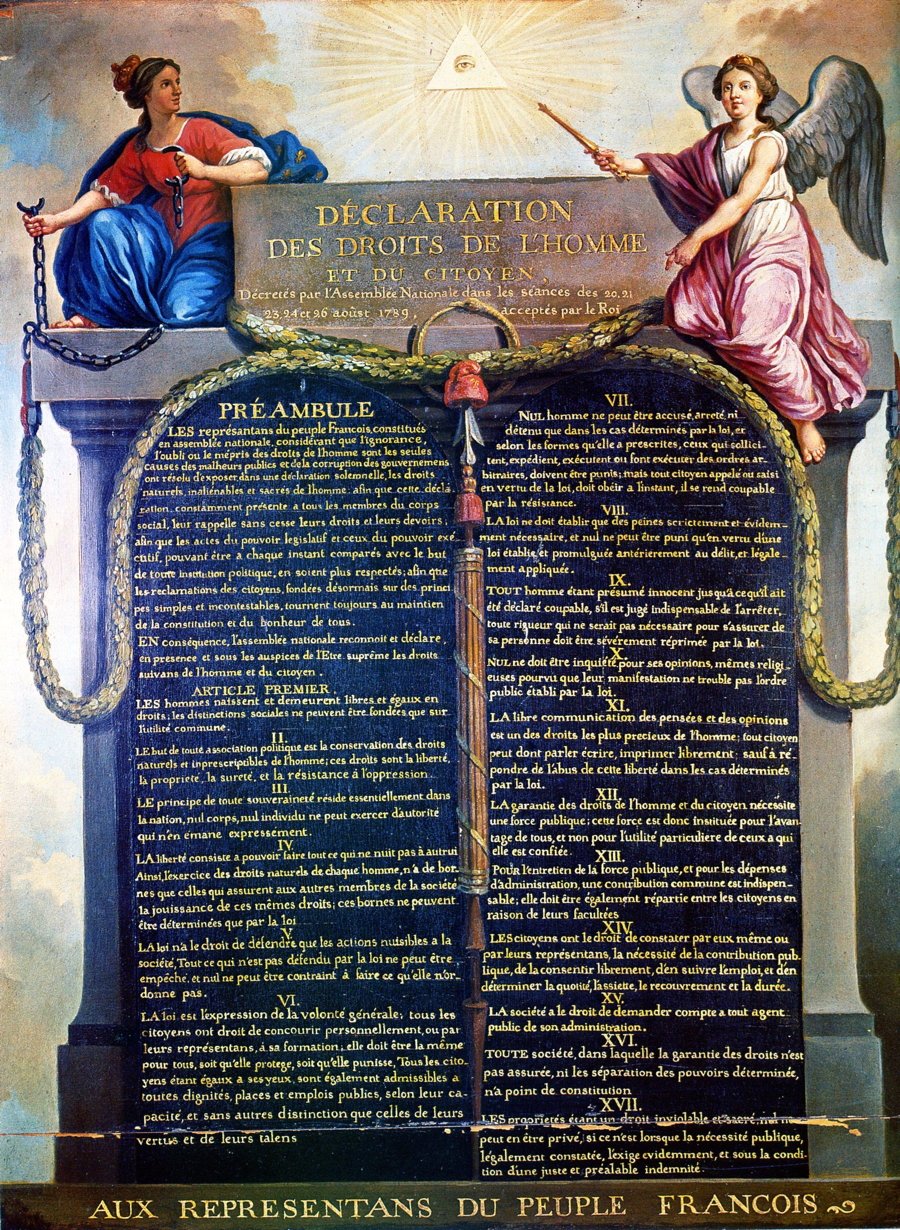 DÉCLARATION
DES DROITS DE L'HOMME
ET DU CITOYEN
Décretés par l'Assemblée Nationale dans les séances des 20.21
23.24 et 26 aoûst 1789, acceptés par le Roi
PRÉAMBULE
LES représantans du peuple François, constitués
en assemblée nationale, considérant que l'ignorance,
l'oubli ou le mépris des droits de l'homme sont les seules
causes des malheurs publics et de la corruption des gouvernemens
ont résolu d'exposer, dans une déclaration solemnelle, les droits
naturels, inaliénables et sacrés de l'homme: afin que cette décla
ration, constamment présente a tous les membres du corps
social, leur rappelle sans cesse leurs droits et leurs devoirs;
afin que les actes du pouvoir legislatif et ceux du pouvoir exé
cutif, pouvant être a chaque instant comparés avec le but
de toute institution politique, en soient plus respectés; afin que
les reclamations des citoyens, fondées désormais sur des princi
pes simples et incontestables, tournent toujours au maintien
de la constitution et du bonheur de tous.
EN conséquence, l'assemblée nationale reconnoit et déclare,
en presence et sous les auspices de l'Etre suprême les droits
suivans de l'homme et du citoyen.
ARTICLE PREMIER.
LES hommes naissent et demeurent libres et égaux en
droits; les distinctions sociales ne peuvent être fondées que sur
l'utilité commune.
II.
LE but de toute association politique est la conservation des droits
naturels et inprescriptibles de l'homme; ces droits sont la liberté,
la propriété, la sureté, et la résistance à l'oppression.
III.
LE principe de toute souveraineté réside essentiellement dans
la nation, nul corps, nul individu ne peut exercer d'autorité
qui n'en émane expressément.
IV.
LA liberté consiste a pouvoir faire tout ce qui ne nuit pas à autrui
Ainsi, l'exercice des droits naturels de chaque homme, n'a de bor-
nes que celles qui assurent aux autres membres de la société
la jouissance de ces mêmes droits; ces bornes ne peuvent
être déterminées que par la loi
V.
LA loi n'a le droit de défendre que les actions nuisibles a la
société. Tout ce qui n'est pas défendu par la loi ne peut être
empéché, et nul ne peut être contraint à faire ce qu'elle n'or-
donne pas.
VI.
LA loi est l'expression de la volonté générale; tous les
citoyens ont droit de concourir personnellement, ou par
leurs représentans, à sa formation; elle doit être la même
pour tous, soit qu'elle protege, soit qu'elle punisse, Tous les cito-
yens étant égaux a ses yeux, sont également admissibles a
toutes dignités, places et emplois publics, selon leur ca-
pacité, et sans autres distinction que celles de leurs
vertus et de leurs talens
VII.
NUL homme ne peut être accusé, arreté, ni
détenu que dans les cas déterminés par la loi, et
selon les formes qu'elle a prescrites, ceux qui sollici-
tent, expédient, exécutent ou font exécuter des ordres ar-
bitraires, doivent être punis; mais tout citoyen appelé ou saisi
en vertu de la loi, doit obéir a l'instant, il se rend coupable
par la résistance.
VIII.
LA loi ne doit établir que des peines strictement et évidem-
ment nécessaire, et nul ne peut être puni qu'en vertu d'une
loi établie et promulguée antérierement au délit, et légale-
ment appliquée.
IX.
TOUT homme étant présumé innocent jusqu'à ce qu'il ait
été déclaré coupable, s'il est jugé indispensable de l'arrêter,
toute rigueur qui ne serait pas nécessaire pour s'assurer de
sa personne doit être sévèrement réprimée par la loi.
X.
NUL ne doit être inquiété pour ses opinions, mêmes religi-
euses pourvu que leur manifestation ne trouble pas l'ordre
public établi par la loi.
XI.
LA libre communication des pensées et des opinions
est un des droits les plus precieux de l'homme; tout citoyen
peut dont parler écrire, imprimer librement: sauf a ré-
pondre de l'abus de cette liberté dans les cas déterminés
par la loi.
XII.
LA garantie des droits de l'homme et du citoyen nécessite
une force publique; cette force est donc instituée pour l'avan-
tage de tous, et non pour l'utilité particuliere de ceux a qui
elle est confiée.
XIII.
POUR l'entretien de la force publique, et pour les dépenses
d'administration, une contribution commune est indispen-
sable; elle doit être également répartie entre les citoyens en
raison de leurs facultées
XIV.
LES citoyens ont le droit de constater par eux même ou
par leurs représentans, la nécessité de la contribution pub-
lique, de la consentir librement, d'en suivre l'emploi, et d'en
déterminer la quotité, l'assiette, le recouvrement et la durée.
XV.
LA société a le droit de demander compte a tout agent
public de son administration.
XVI.
TOUTE société, dans laquelle la garantie des droits n'est
pas assurée, ni les séparation des pouvoirs déterminée,
n'a point de constitution
XVII.
LES propriétés étant un droit inviolable et sacré, nul ne
peut en être privé, si ce n'est lorsque la nécessité publique,
légalement constatée, l'exige evidemment, et sous la condi-
tion d'une juste et préalable indemnité.
AUX REPRESENTANS DU PEUPLE FRANCOIS